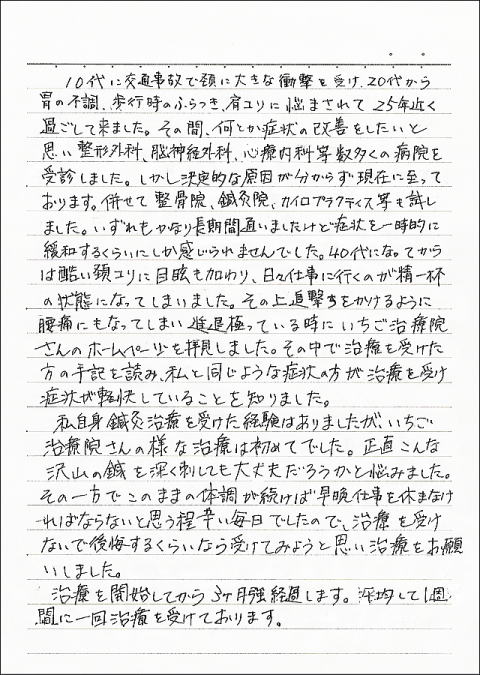 10代に交通事故で頚に大きな衝撃を受け、20代から
胃の不調、歩行時のふらつき、肩コリに悩まされて25年近く
過ごして来ました。その間、何とか症状の改善をしたいと
思い整形外科、脳神経外科、心療内科等数多くの病院を
受診しました。しかし決定的な原因が分からず現在に至って
おります。併せて整骨院、鍼灸院、カイロプラクティス等も試し
ました。いずれもかなり長期間通いましたけど症状を一時的に
緩和するくらいにしか感じられませんでした。40代になってから
は酷い頚コリに目眩も加わり、日々仕事に行くのが精一杯
の状態になってしまいました。その上追撃ちをかけるように
腰痛にもなってしまい進退極っている時にいちご治療院
さんのホームページを拝見しました。その中で治療を受けた
方の手記を読み、私と同じような症状の方が治療を受け
症状が軽快していることを知りました。
私自身鍼灸治療を受けた経験はありましたが、いちご
治療院さんの様な治療は初めてでした。正直こんな
沢山の鍼を深く刺しても大丈夫だろうかと悩みました。
その一方でこのままの体調が続けば早晩仕事を休まなけ
ればならないと思う程辛い毎日でしたので、治療を受け
ないで後悔するくらいなら受けてみようと思い治療をお願
いしました。
治療を開始してから3ヶ月強経過します。平均して1週
間に一回治療を受けております。